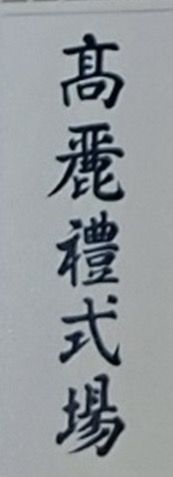 髙麗禮式場